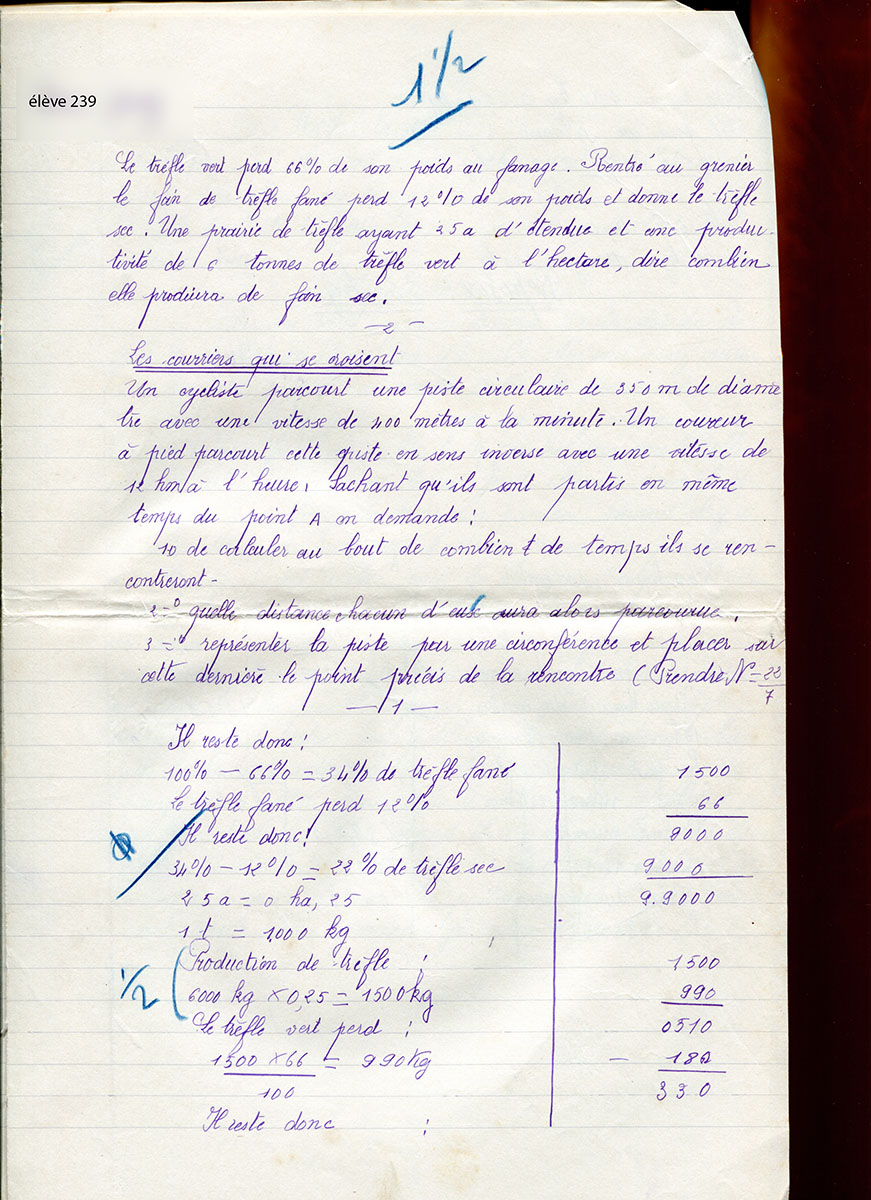 1 1/2
élève 239
Le trèfle vert perd 66% de son poids au fanage. Rentré au grenier
le foin de trèfle fané perd 12% de son poids et donne le trèfle
sec. Une prairie de trèfle ayant 25a d'étendue et une produc-
tivité de 6 tonnes de trèfle vert à l'hectare, dire combien
elle produira de foin sec.
— 2 —
Les courriers qui se croisent
Un cycliste parcourt une piste circulaire de 350 m de diamè
tre avec une vitesse de 400 mètres à la minute. Un coureur
à pied parcourt cette piste en sens inverse avec une vitesse de
12 km à l'heure. Sachant qu'ils sont partis en même
temps du point A on demande :
10 de calculer au bout de combien t de temps ils se ren-
contreront -
2=° quelle distance chacun d'eux aura alors parcourue.
3=° représenter la piste par une circonférence et placer sur
cette dernière le point précis de la rencontre ( Prendre N = 22/7
— 1 —
Il reste donc :
100% — 66% = 34% de trèfle fané
Le trèfle fané perd 12%
Il reste donc :
34% — 12% = 22% de trèfle sec
25a = 0 ha, 25
1 t = 1000 kg
1/2
Production de trefle :
6000 kg × 0,25 = 1500 kg
Le trèfle vert perd :
1500 × 66 = 990 Kg
100
Il reste donc :
1500
66
9000
9000
9.9000
1500
990
0510
— 180
330